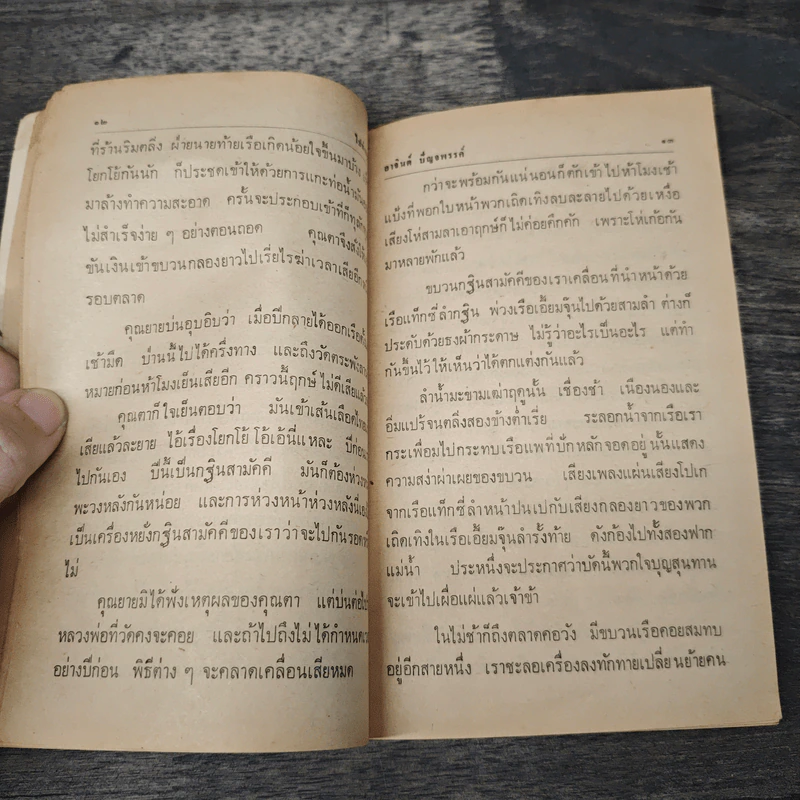 ๑๒
ที่ร้านริมตลิ่ง ฝ่ายนายท้ายเรือเกิดน้อยใจขึ้นมาบ้าง
โยกโย้กันนัก ก็ประชดเข้าให้ด้วยการแกะท่อน้ำมัน
มาล้างทำความสะอาด ครั้นจะประกอบเข้าที่ก็ทุลัก
ไม่สำเร็จง่าย ๆ อย่างตอนถอด คุณตาจึงสั่งให้
ขันเงินเข้าขบวนกลองยาวไปเรี่ยไรฆ่าเวลาเสียอีก
รอบตลาด
คุณยายบ่นอุบอิบว่า เมื่อปีกลายได้ออกเรือตั้งแต่
เช้ามืด ป่านนี้ไปได้ครึ่งทาง และถึงวัดตระพัง
หมายก่อนห้าโมงเย็นเสียอีก คราวนี้ฤกษ์ไม่ดีเสียแล้ว
คุณตาก็ใจเย็นตอบว่า มันเข้าเส้นเลือดไทย
เสียแล้วละยาย ไอ้เรื่องโยกโย้ โอ้เอ้นี่แหละ ปีก่อน
ไปกันเอง ปีนี้เป็นกฐินสามัคคี มันก็ต้องห่วง
พะวงหลังกันหน่อย และการห่วงหน้าห่วงหลังนี่เอง
เป็นเครื่องหยั่งกฐินสามัคคีของเราว่าจะไปกันรอด
ไม่
คุณยายมิได้ฟังเหตุผลของคุณตา แต่บ่นต่อไป
หลวงพ่อที่วัดคงจะคอย และถ้าไปถึงไม่ได้กำหนด
อย่างปีก่อน พิธีต่าง ๆ จะคลาดเคลื่อนเสียหมด
อาจินต์ ปัญจพรรค์ ๑๓
กว่าจะพร้อมกันแน่นอนก็ตักเข้าไปห้าโมงเช้า
แป้งที่พอกใบหน้าพวกเถิดเทิงลบละลายไปด้วยเหงื่อ
เสียงโห่สามลาเอาฤกษ์ก็ไม่ค่อยคึกคัก เพราะโห่เก้อกัน
มาหลายพักแล้ว
ขบวนกฐินสามัคคีของเราเคลื่อนที่นำหน้าด้วย
เรือแท็กซี่ลำกฐิน พ่วงเรือเอี้ยมจุ๊นไปด้วยสามลำ ต่างก็
ประดับด้วยธงผ้ากระดาษ ไม่รู้ว่าอะไรเป็นอะไร แต่ทำ
กันขึ้นไว้ให้เห็นว่าได้ตกแต่งกันแล้ว
ลำน้ำมะขามเฒ่าฤดูนั้น เชื่องช้า เนืองนองและ
อิ่มแปร้จนตลิ่งสองข้างต่ำเรี่ย ระลอกน้ำจากเรือเรา
กระเพื่อมไปกระทบเรือแพที่ปักหลักจอดอยู่นั้นแสดง
ความสง่าผ่าเผยของขบวน เสียงเพลงแผ่นเสียงโปเก
จากเรือแท็กซี่ลำหน้าปนเปกับเสียงกลองยาวของพวก
เถิดเทิงในเรือเอี้ยมจุ๊นลำรั้งท้าย ดังก้องไปทั้งสองฟาก
แม่น้ำ ประหนึ่งจะประกาศว่าบัดนี้พวกใจบุญสุนทาน
จะเข้าไปเผื่อแผ่แล้วเจ้าข้า
ในไม่ช้าก็ถึงตลาดคอวัง มีขบวนเรือคอยสมทบ
อยู่อีกสายหนึ่ง เราชะลอเครื่องลงทักทายเปลี่ยนย้ายคน